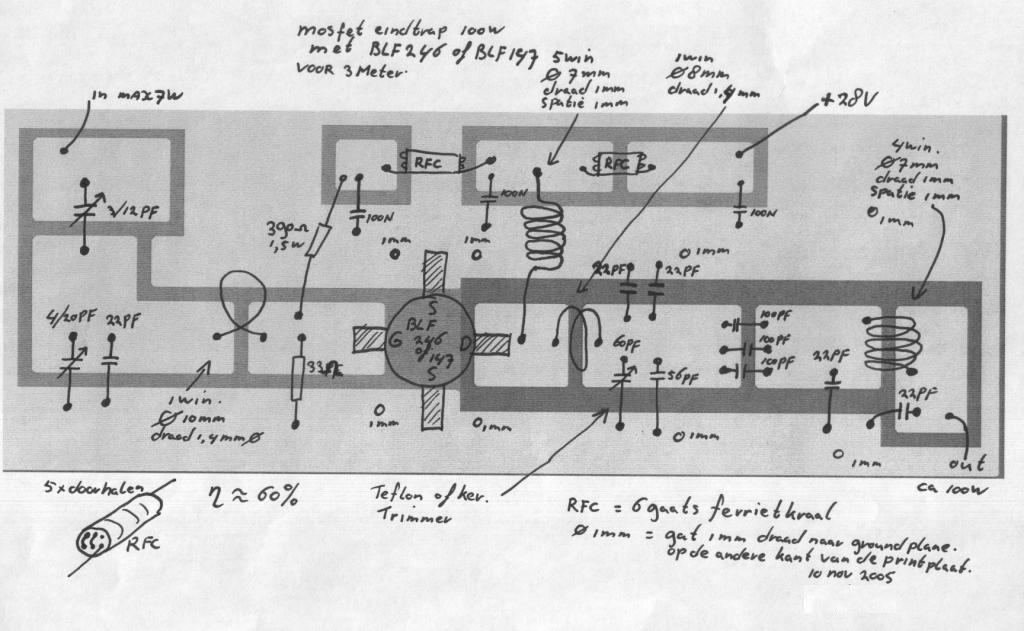 mosfet eindtrap 100W
met BLF 246 of BLF147
VOOR 3 Meter.
5win
Ø 7mm
draad 1mm
spatie 1mm
1win
Ø 8mm
draad 1,4mm
in max 7W
+28V
4win.
Ø 7mm
draad 1mm
spatie 1mm
0 1mm
RFC
RFC
3/12PF
100N
100N
100N
390Ω
1,5W
1mm
1mm
0 1mm
22PF
22PF
4/20PF
22PF
S
G
BLF
246
of
147
D
S
33
60PF
56PF
100PF
100PF
100PF
22PF
22PF
1win.
Ø 10mm
draad 1,4mm Ø
0
1mm
0 1mm
0 1mm
0 1mm
out
ca 100W
5x doorhalen
RFC
η ≈ 60%
Teflon of ker.
Trimmer
RFC = 6 gaats ferrietkraal
Ø 1mm = gat 1mm draad naar groundplane.
op de andere kant van de printplaat.
10 nov 2005